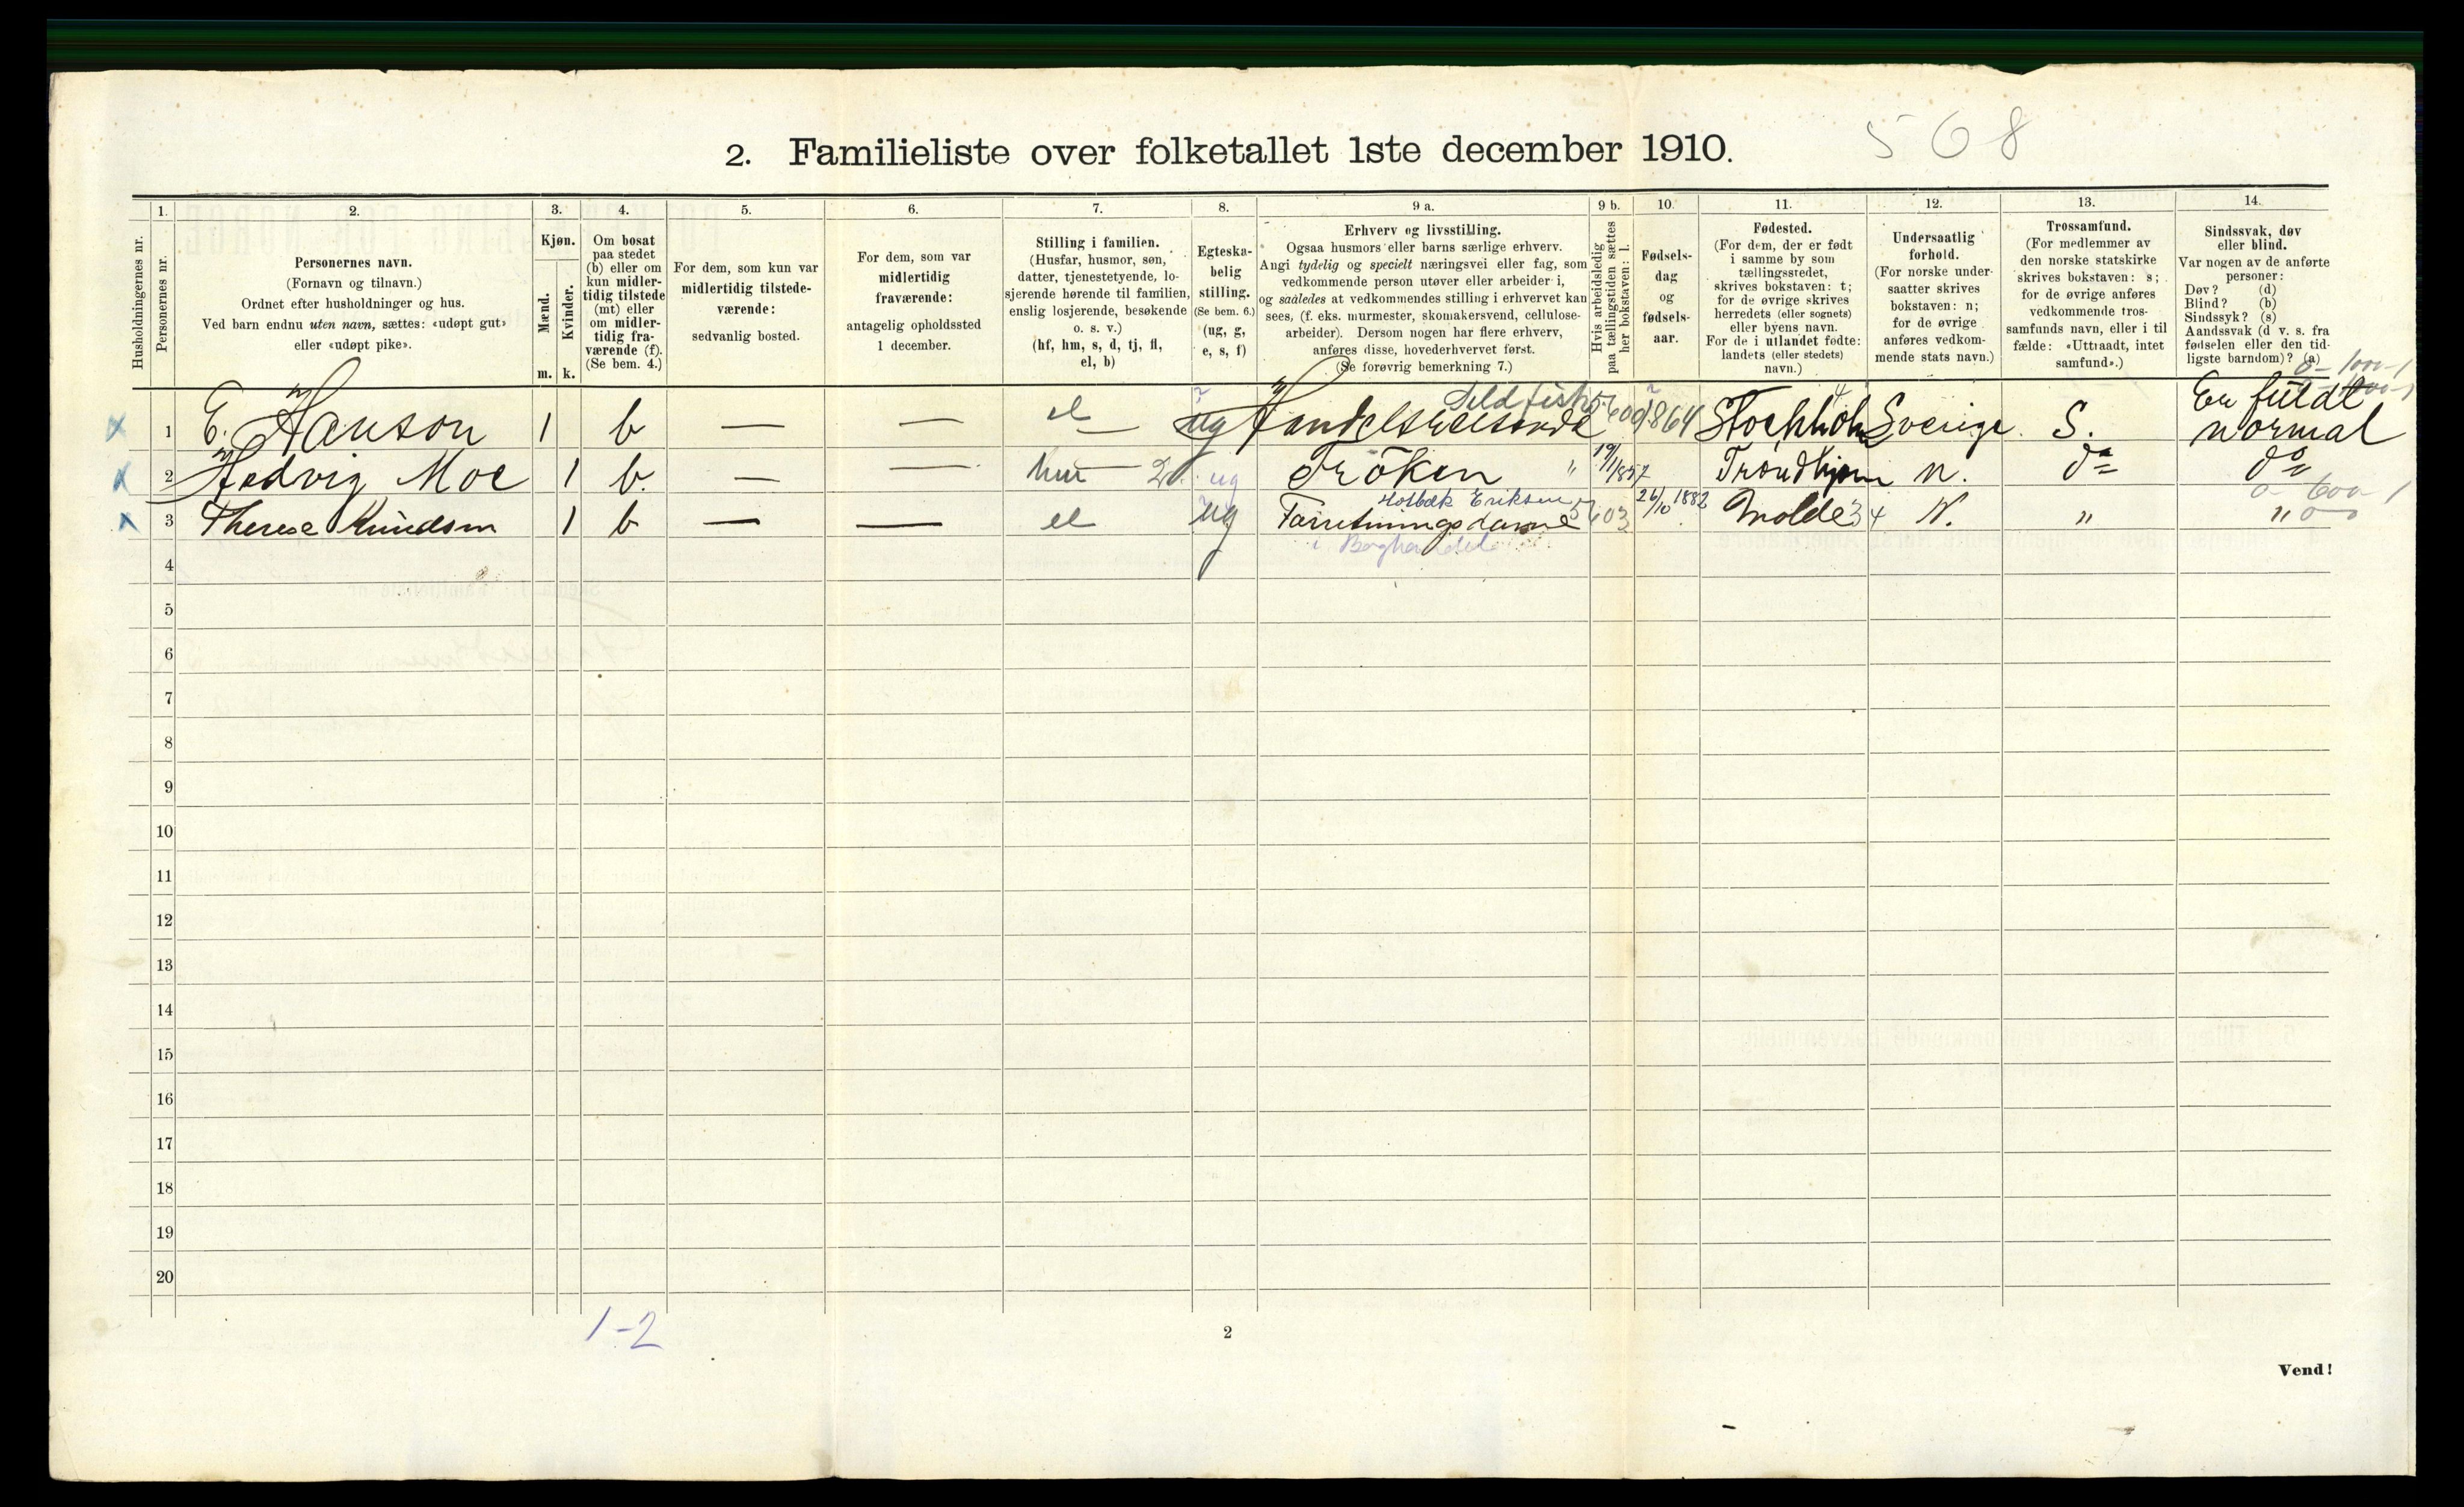 2. Familieliste over folketallet 1ste december 1910.
568
Husholdningernes nr.
1.
Personernes nr.
2.
Personernes navn.
(Fornavn og tilnavn.)
Ordnet efter husholdninger og hus.
Ved barn endnu uten navn, sættes: «udøpt gut»
eller «udøpt pike».
3.
Kjøn.
Mænd.
Kvinder.
m. k.
4.
Om bosat
paa stedet
(b) eller om
kun midler-
tidig tilstede
(mt) eller
om midler-
tidig fra-
værende (f).
(Se bem. 4.)
5.
For dem, som kun var
midlertidig tilstede-
værende:
sedvanlig bosted.
6.
For dem, som var
midlertidig
fraværende:
antagelig opholdssted
1 december.
7.
Stilling i familien.
(Husfar, husmor, søn,
datter, tjenestetyende, lo-
sjerende hørende til familien,
enslig losjerende, besøkende
o. s. v.)
(hf, hm, s, d, tj, fl,
el, b)
8.
Egteska-
belig
stilling.
(Se bem. 6.)
(ug, g,
e, s, f)
9 a.
Erhverv og livsstilling.
Ogsaa husmors eller barns særlige erhverv.
Angi tydelig og specielt næringsvei eller fag, som
vedkommende person utøver eller arbeider i,
og saaledes at vedkommendes stilling i erhvervet kan
sees, (f. eks. murmester, skomakersvend, cellulose-
arbeider). Dersom nogen har flere erhverv,
anføres disse, hovederhvervet først.
(Se forøvrig bemerkning 7.)
9 b.
Hvis arbeidsledig
paa tællingstiden sættes
her bokstaven: l.
10.
Fødsels-
dag
og
fødsels-
aar.
11.
Fødested.
(For dem, der er født
i samme by som
tællingsstedet,
skrives bokstaven: t;
for de øvrige skrives
herredets (eller sognets)
eller byens navn.
For de i utlandet fødte:
landets (eller stedets)
navn.)
12.
Undersaatlig
forhold.
(For norske under-
saatter skrives
bokstaven: n;
for de øvrige
anføres vedkom-
mende stats navn.)
13.
Trossamfund.
(For medlemmer av
den norske statskirke
skrives bokstaven: s;
for de øvrige anføres
vedkommende tros-
samfunds navn, eller i til
fælde: «Uttraadt, intet
samfund».)
14.
Sindssvak, døv
eller blind.
Var nogen av de anførte
personer:
Døv? (d)
Blind? (b)
Sindssyk? (s)
Aandssvak (d v. s. fra
fødselen eller den tid-
ligste barndom)? (a)
0-1000-1
Sild fisk
1 E. Hanson 1 b — — el ug Handelsreisende 1864 Stockholm Sverige S. En fuldt normal
2 Hedvig Moe 1 b. — — hm ug Fröken " 19/1 1857 Trondhjem n. do do
Holbæk Eriksen
0-600-1
3 Therese Knudsen 1 b — — el ug Forretningsdame 26/10 1882 Molde 34 N. " "
i Boghandel
4
5
6
7
8
9
10
11
12
13
14
15
16
17
18
19
20
1-2
2
Vend!